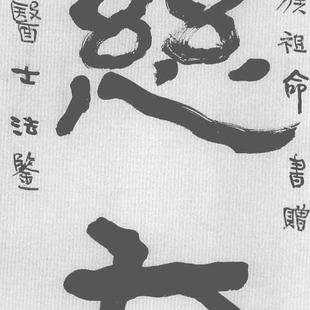 祖命書贈
慈
醫士法鑒